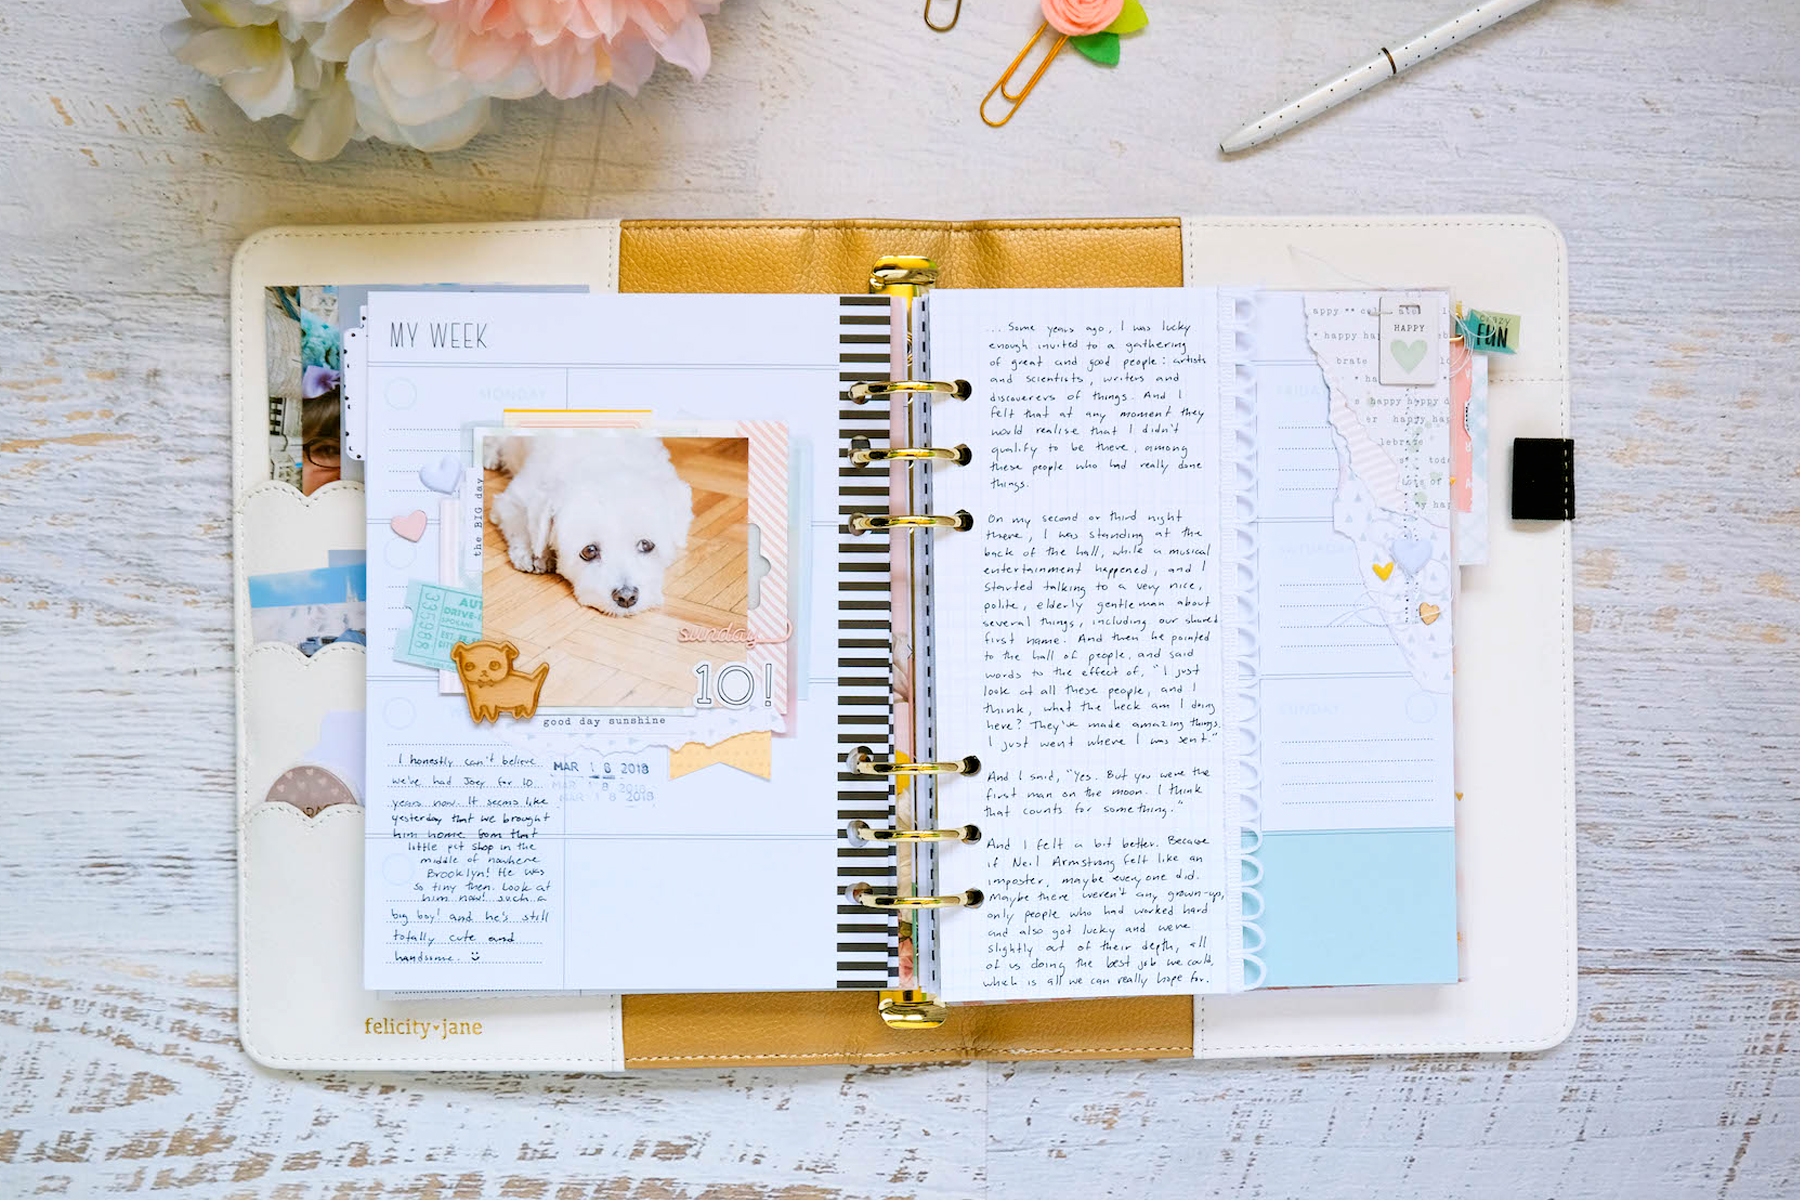 MY WEEK
MONDAY
the BIG day
335988
AUT
DRIVE-
SPOKANE
sunday
10!
good day sunshine
MAR 18 2018
MAR 18 2018
MAR 18 2018
I honestly can't believe
we've had Joey for 10
years now. It seems like
yesterday that we brought
him home from that
little pet shop in the
middle of nowhere
Brooklyn! He was
so tiny then. Look at
him now! such a
big boy! and he's still
totally cute and
handsome.
felicity jane
... Some years ago, I was lucky
enough invited to a gathering
of great and good people: artists
and scientists, writers and
discoverers of things. And I
felt that at any moment they
would realise that I didn't
qualify to be there, among
these people who had really done
things.
On my second or third night
there, I was standing at the
back of the hall, while a musical
entertainment happened, and I
started talking to a very nice,
polite, elderly gentleman about
several things, including our shared
first name. And then he pointed
to the hall of people, and said
words to the effect of, "I just
look at all these people, and I
think, what the heck am I doing
here? They've made amazing things.
I just went where I was sent."
And I said, "Yes. But you were the
first man on the moon. I think
that counts for something."
And I felt a bit better. Because
if Neil Armstrong felt like an
imposter, maybe everyone did.
Maybe there weren't any grown-up,
only people who had worked hard
and also got lucky and were
slightly out of their depth, all
of us doing the best job we could,
which is all we can really hope for.
HAPPY
crazy
FUN
appy ** cel
* happy ha
brate
* happy
s happy happy d
er happy hap
lebrate
tod
lots of
hap
SUNDAY